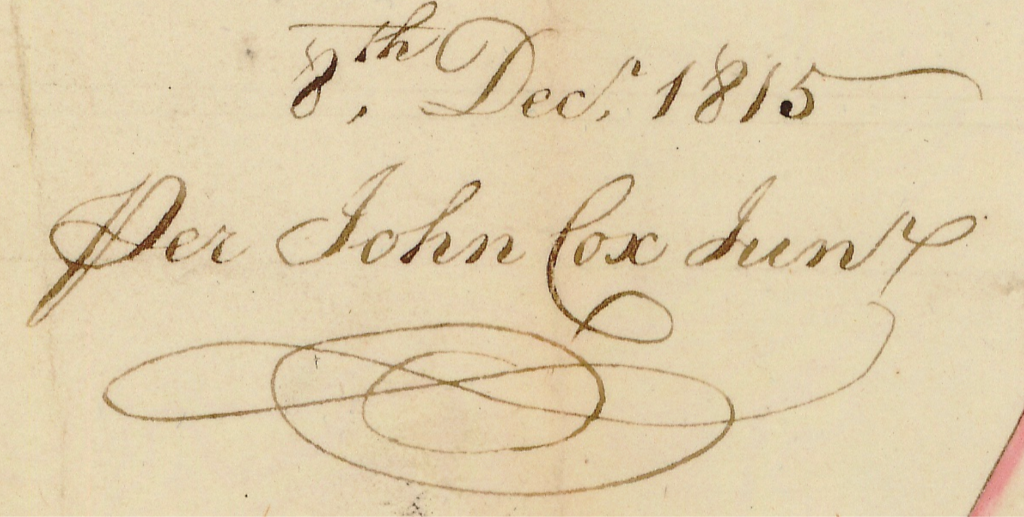 8th, Decr. 1815
Per John Cox Junr